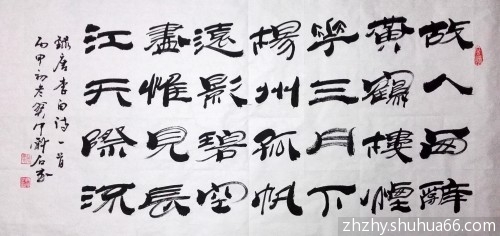 故人西辭
黄鶴樓煙
華三月下
楊州孤帆
遠影碧空
盡惟見長
江天際流
録唐李白诗一首
丙申初冬
zhzhy.shuhua66.com